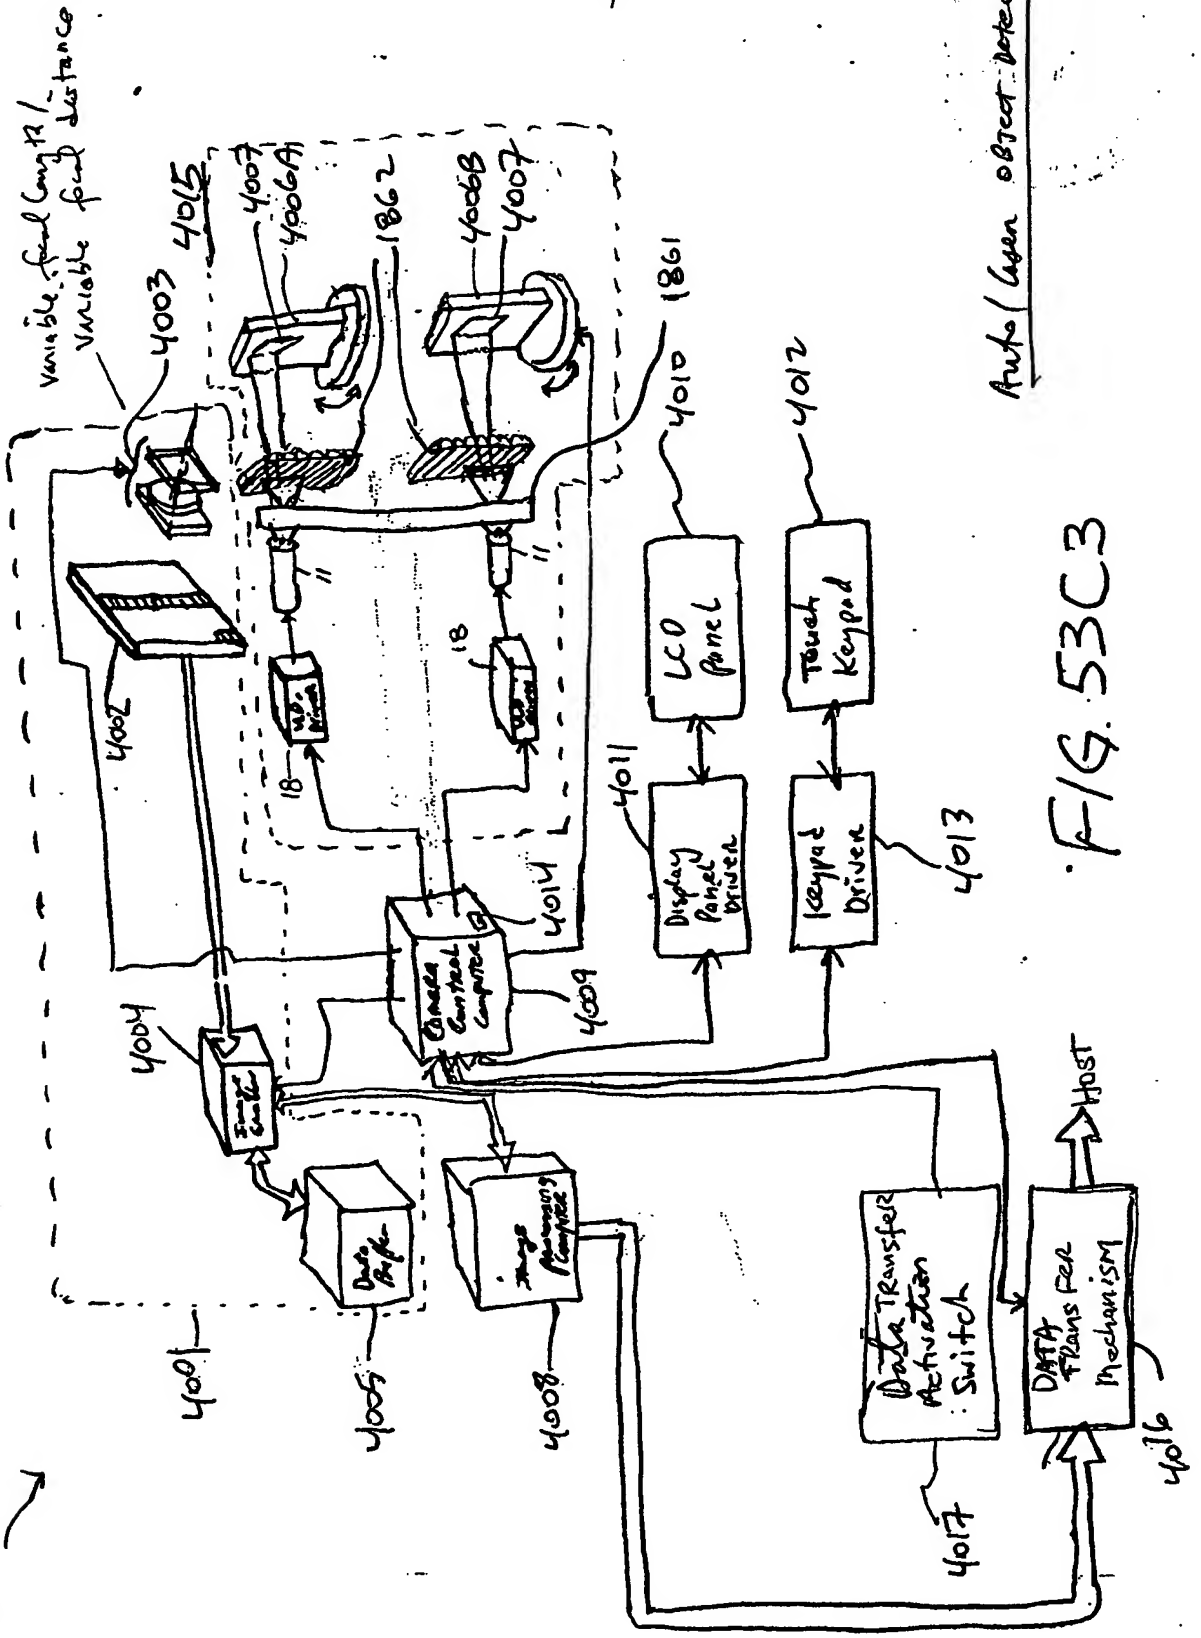 variable focal length /
variable focal distance
4003
4015
4007
4006A
1862
4006B
4007
1861
4002
11
11
18
VLD
Driver
18
VLD
Driver
4010
LCD
Panel
4012
Touch
Keypad
4011
Display
Panel
Driver
Keypad
Driver
4013
4014
Camera
Control
Computer
4009
4004
Image
Grabber
Data
Buffer
4005
Image
Processing
Computer
4008
4001
Data Transfer
Activation
Switch
4017
DATA
Transfer
Mechanism
4016
HOST
Auto/Laser Object
FIG. 53C3